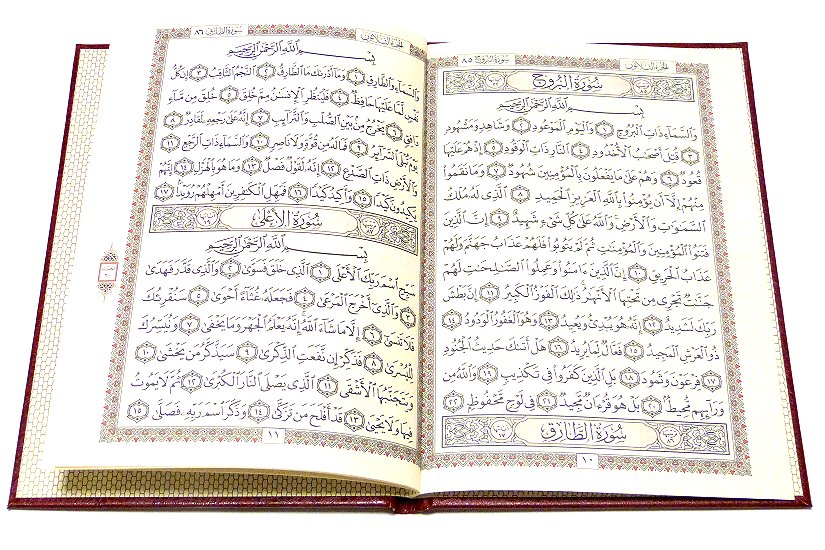 الجزء الثلاثون سورة البروج ٨٥
سُورَةُ البُرُوجِ
بِسْمِ اللَّهِ الرَّحْمَٰنِ الرَّحِيمِ
وَالسَّمَاءِ ذَاتِ الْبُرُوجِ ١ وَالْيَوْمِ الْمَوْعُودِ ٢ وَشَاهِدٍ وَمَشْهُودٍ
٣ قُتِلَ أَصْحَٰبُ الْأُخْدُودِ ٤ النَّارِ ذَاتِ الْوَقُودِ ٥ إِذْ هُمْ عَلَيْهَا
قُعُودٌ ٦ وَهُمْ عَلَىٰ مَا يَفْعَلُونَ بِالْمُؤْمِنِينَ شُهُودٌ ٧ وَمَا نَقَمُوا
مِنْهُمْ إِلَّا أَن يُؤْمِنُوا بِاللَّهِ الْعَزِيزِ الْحَمِيدِ ٨ الَّذِي لَهُ مُلْكُ
السَّمَٰوَٰتِ وَالْأَرْضِ وَاللَّهُ عَلَىٰ كُلِّ شَيْءٍ شَهِيدٌ ٩ إِنَّ الَّذِينَ
فَتَنُوا الْمُؤْمِنِينَ وَالْمُؤْمِنَٰتِ ثُمَّ لَمْ يَتُوبُوا فَلَهُمْ عَذَابُ جَهَنَّمَ وَلَهُمْ
عَذَابُ الْحَرِيقِ ١٠ إِنَّ الَّذِينَ ءَامَنُوا وَعَمِلُوا الصَّٰلِحَٰتِ لَهُمْ
جَنَّٰتٌ تَجْرِي مِن تَحْتِهَا الْأَنْهَٰرُ ذَٰلِكَ الْفَوْزُ الْكَبِيرُ ١١ إِنَّ بَطْشَ
رَبِّكَ لَشَدِيدٌ ١٢ إِنَّهُ هُوَ يُبْدِئُ وَيُعِيدُ ١٣ وَهُوَ الْغَفُورُ الْوَدُودُ ١٤
ذُو الْعَرْشِ الْمَجِيدُ ١٥ فَعَّالٌ لِّمَا يُرِيدُ ١٦ هَلْ أَتَىٰكَ حَدِيثُ الْجُنُودِ
١٧ فِرْعَوْنَ وَثَمُودَ ١٨ بَلِ الَّذِينَ كَفَرُوا فِي تَكْذِيبٍ ١٩ وَاللَّهُ مِن
وَرَائِهِم مُّحِيطٌ ٢٠ بَلْ هُوَ قُرْءَانٌ مَّجِيدٌ ٢١ فِي لَوْحٍ مَّحْفُوظٍ ٢٢
سُورَةُ الطَّارِقِ
١٠
الجزء الثلاثون سورة الطارق ٨٦
بِسْمِ اللَّهِ الرَّحْمَٰنِ الرَّحِيمِ
وَالسَّمَاءِ وَالطَّارِقِ ١ وَمَا أَدْرَىٰكَ مَا الطَّارِقُ ٢ النَّجْمُ الثَّاقِبُ ٣ إِن كُلُّ
نَفْسٍ لَّمَّا عَلَيْهَا حَافِظٌ ٤ فَلْيَنظُرِ الْإِنسَٰنُ مِمَّ خُلِقَ ٥ خُلِقَ مِن مَّاءٍ
دَافِقٍ ٦ يَخْرُجُ مِن بَيْنِ الصُّلْبِ وَالتَّرَائِبِ ٧ إِنَّهُ عَلَىٰ رَجْعِهِ لَقَادِرٌ ٨
يَوْمَ تُبْلَى السَّرَائِرُ ٩ فَمَا لَهُ مِن قُوَّةٍ وَلَا نَاصِرٍ ١٠ وَالسَّمَاءِ ذَاتِ الرَّجْعِ ١١
وَالْأَرْضِ ذَاتِ الصَّدْعِ ١٢ إِنَّهُ لَقَوْلٌ فَصْلٌ ١٣ وَمَا هُوَ بِالْهَزْلِ ١٤ إِنَّهُمْ
يَكِيدُونَ كَيْدًا ١٥ وَأَكِيدُ كَيْدًا ١٦ فَمَهِّلِ الْكَٰفِرِينَ أَمْهِلْهُمْ رُوَيْدًا ١٧
سُورَةُ الأَعْلَى
بِسْمِ اللَّهِ الرَّحْمَٰنِ الرَّحِيمِ
سَبِّحِ اسْمَ رَبِّكَ الْأَعْلَى ١ الَّذِي خَلَقَ فَسَوَّىٰ ٢ وَالَّذِي قَدَّرَ فَهَدَىٰ
٣ وَالَّذِي أَخْرَجَ الْمَرْعَىٰ ٤ فَجَعَلَهُ غُثَاءً أَحْوَىٰ ٥ سَنُقْرِئُكَ
فَلَا تَنسَىٰ ٦ إِلَّا مَا شَاءَ اللَّهُ إِنَّهُ يَعْلَمُ الْجَهْرَ وَمَا يَخْفَىٰ ٧ وَنُيَسِّرُكَ
لِلْيُسْرَىٰ ٨ فَذَكِّرْ إِن نَّفَعَتِ الذِّكْرَىٰ ٩ سَيَذَّكَّرُ مَن يَخْشَىٰ ١٠
وَيَتَجَنَّبُهَا الْأَشْقَى ١١ الَّذِي يَصْلَى النَّارَ الْكُبْرَىٰ ١٢ ثُمَّ لَا يَمُوتُ
فِيهَا وَلَا يَحْيَىٰ ١٣ قَدْ أَفْلَحَ مَن تَزَكَّىٰ ١٤ وَذَكَرَ اسْمَ رَبِّهِ فَصَلَّىٰ ١٥
١١